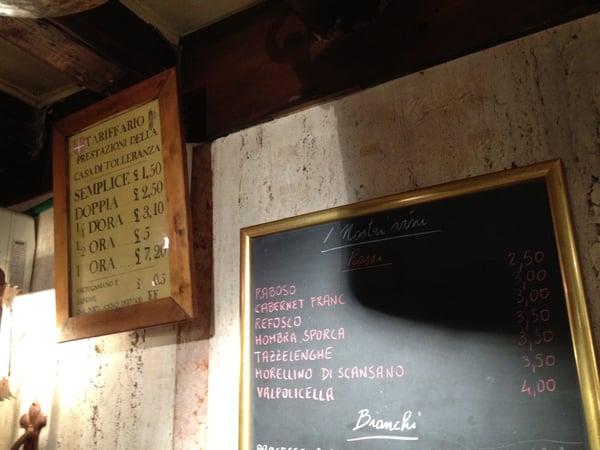 TARIFFARIO
PRESTAZIONI DELLA
CASA DI TOLLERANZA
SEMPLICE £ 1,50
DOPPIA £ 2,50
1/4 D'ORA £ 3,10
1/2 ORA £ 5
1 ORA £ 7,20
ASCIUGAMANO E £ 0,5
SAPONE
I Nostri vini
Rossi
RABOSO 2,50
CABERNET FRANC 3,00
REFOSCO 3,00
HOMBRA SPORCA 3,50
TAZZELENGHE 3,50
MORELLINO DI SCANSANO 3,50
VALPOLICELLA 4,00
Bianchi